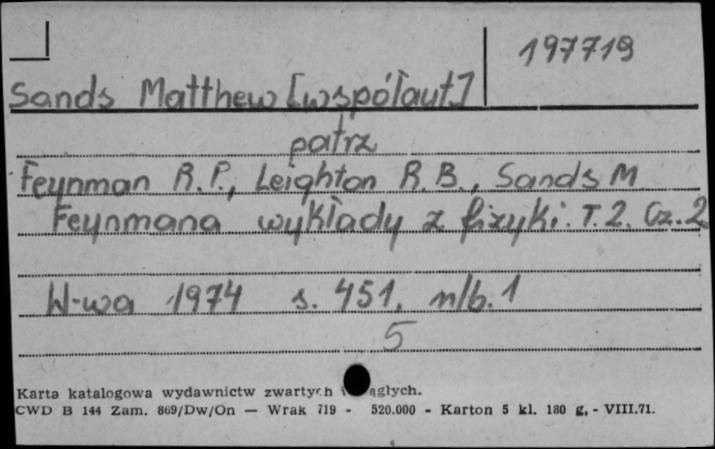 197719
Sands Matthew [współaut.]
patrz
Feynman R.P., Leighton R.B., Sands M
Feynmana wykłady z fizyki. T.2. Cz.2
W-wa 1974 s. 451, nlb. 1
5
Karta katalogowa wydawnictw zwartych
CWD B 144 Zam. 869/Dw/On — Wrak 719 - 520.000 - Karton 5 kl. 180 g. - VIII.71.